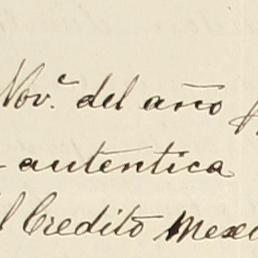 Nov.ᵉ del año
autentica
el Credito Mexi